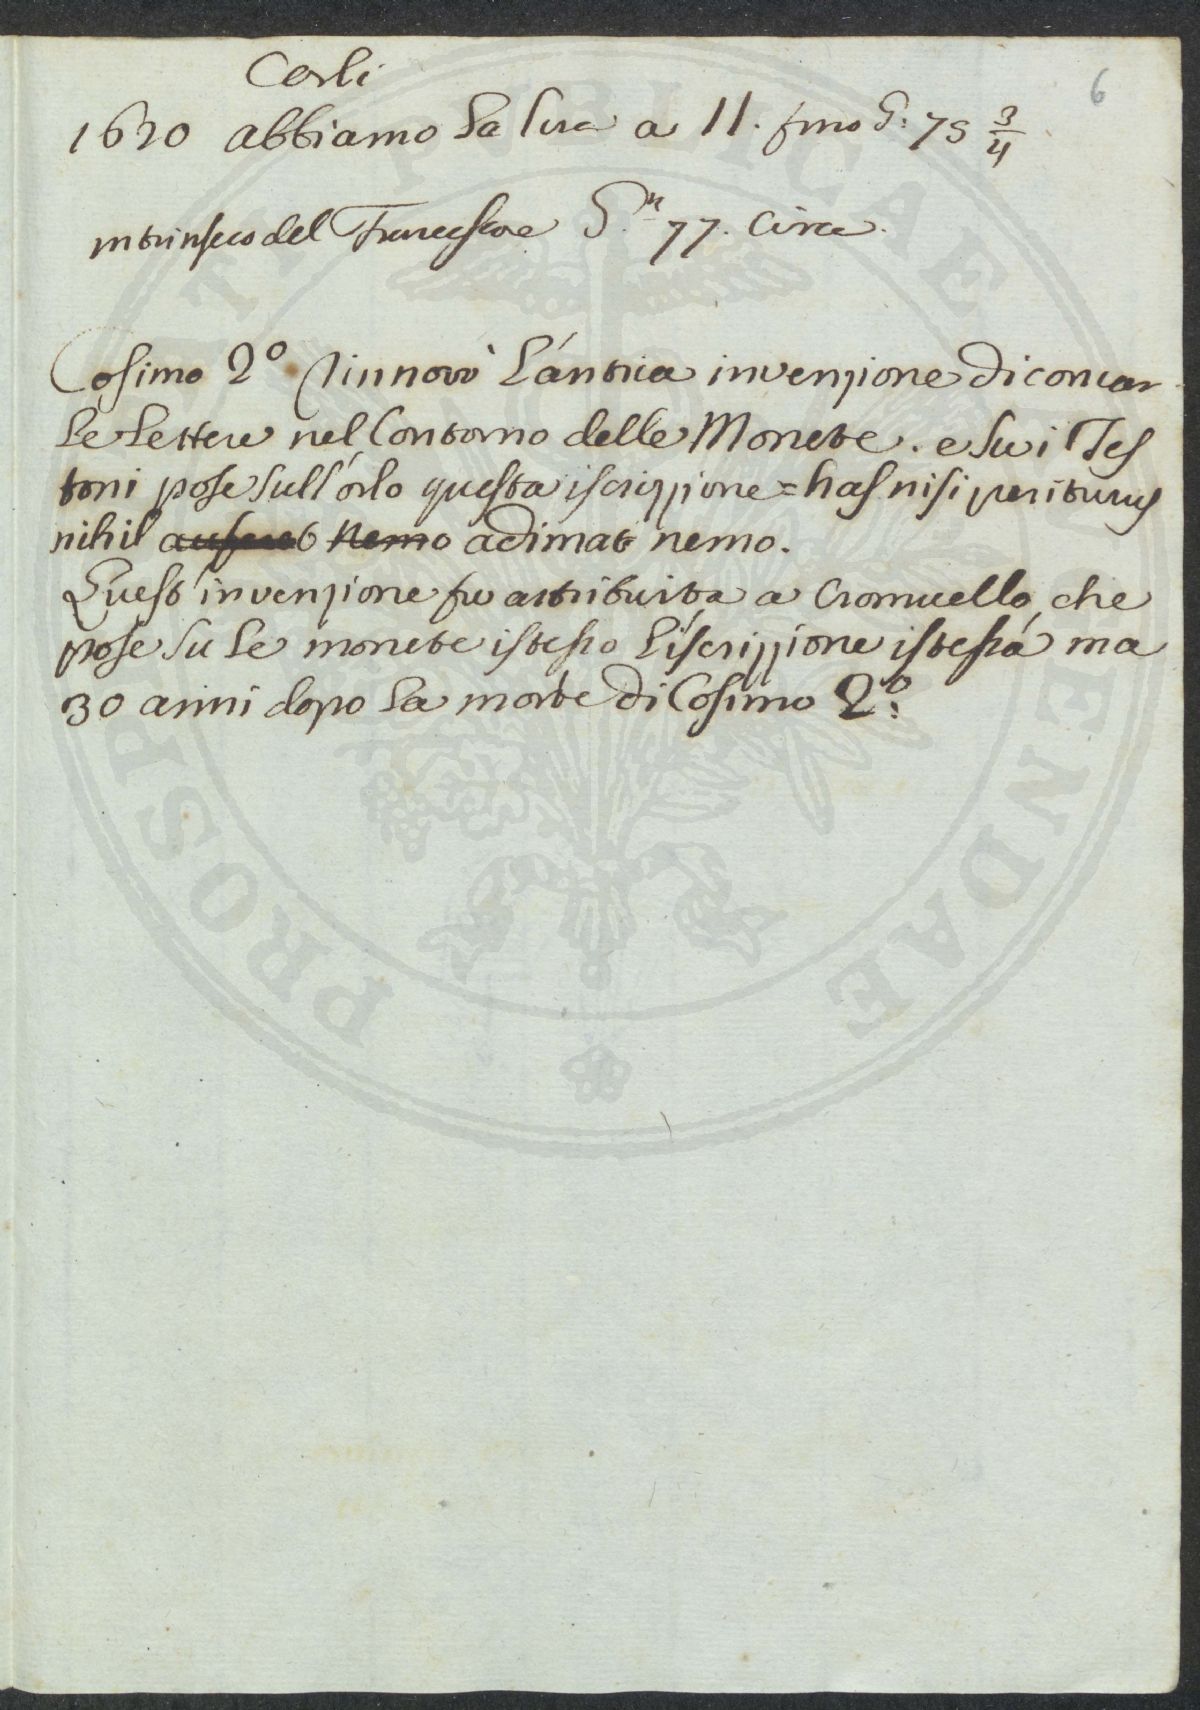 6
Carli
1620 abbiamo la lira a 11. fino G: 75 3/4
intrinseco del Francescone G.ni 77. Circa.
Cosimo 2º rinnovò l'antica invenzione di coniar
le lettere nel Contorno delle Monete. e su i Tes
toni pose sull'orlo questa iscrizzione = has nisi periturus
nihil aufferat nemo adimat nemo.
Quest'invenzione fu attribuita a Cromuello, che
pose su le monete istesso l'iscrizzione istessa ma
30 anni dopo la morte di Cosimo 2º.
PROSPERITATI PUBLICAE AUGENDAE